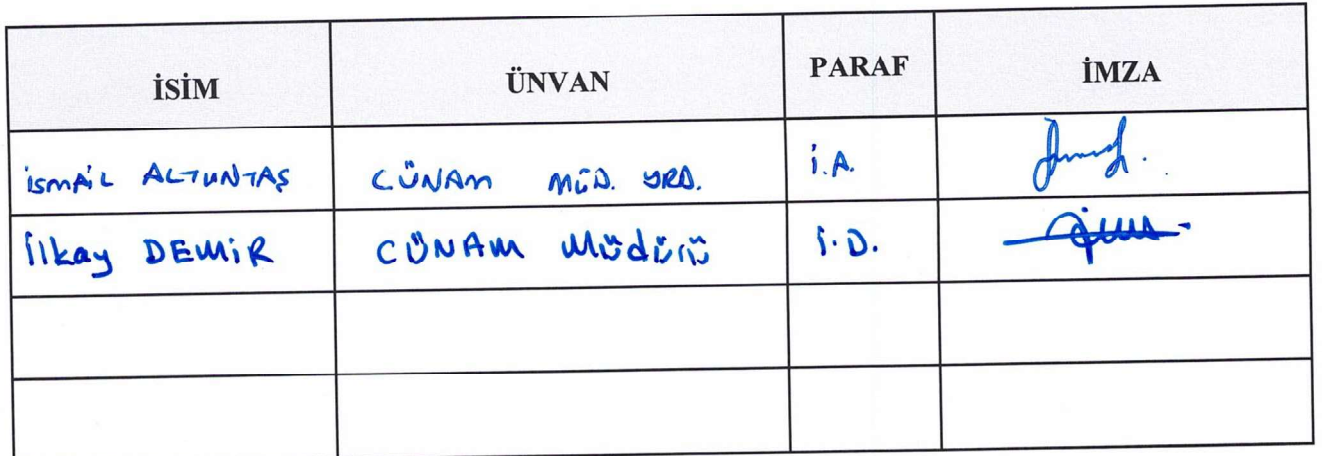 İSİM ÜNVAN PARAF İMZA
İSMAİL ALTUNTAŞ CÜNAM MÜD. YRD. İ.A.
İlkay DEMİR CÜNAM Müdürü İ.D.